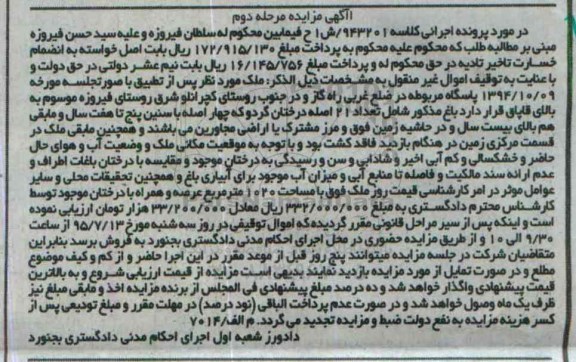 آگهی مزایده مرحله دوم
در مورد پرونده اجرائی کلاسه ۹۴۳۲۰۱/ش۱ ح فیمابین محکوم له سلطان فیروزه و علیه سید حسن فیروزه
مبنی بر مطالبه طلب که محکوم علیه محکوم به پرداخت مبلغ ۱۷۲/۹۱۵/۱۳۰ ریال بابت اصل خواسته به انضمام
خسارت تاخیر تادیه در حق محکوم له و پرداخت مبلغ ۱۶/۱۴۵/۷۵۶ ریال بابت نیم عشر دولتی در حق دولت و
با عنایت به توقیف اموال غیر منقول به مشخصات ذیل الذکر: ملک مورد نظر پس از تطبیق با صورتجلسه مورخه
۱۳۹۴/۱۰/۰۹ پاسگاه مربوطه در ضلع غربی راه گاز و در جنوب روستای کچرانلو شرق روستای فیروزه موسوم به
بالای قاپاق قرار دارد باغ مذکور شامل تعداد ۲۱ اصله درختان گردو که چهار اصله با سنین پنج تا هفت سال و مابقی
هم بالای بیست سال و در حاشیه زمین فوق و مرز مشترک با اراضی مجاورین می باشند و همچنین مابقی ملک در
قسمت مرکزی زمین در هنگام بازدید فاقد کشت بود و با توجه به موقعیت مکانی ملک و وضعیت آب و هوای حال
حاضر و خشکسالی و کم آبی اخیر و شادابی و سن و رسیدگی به درختان موجود و مقایسه با درختان باغات اطراف و
عدم ارائه سند مالکیت و فاصله تا منابع آبی و میزان آب موجود برای آبیاری باغ و همچنین تحقیقات محلی و سایر
عوامل موثر در امر کارشناسی قیمت روز ملک فوق با مساحت ۱۰۲۰ متر مربع عرصه و همراه با درختان موجود توسط
کارشناس محترم دادگستری به مبلغ ۳۳۲/۰۰۰/۰۰۰ ریال معادل ۳۳/۲۰۰/۰۰۰ هزار تومان ارزیابی نموده
است و اینکه پس از سیر مراحل قانونی مقرر گردیده که اموال توقیفی در روز سه شنبه مورخ ۹۵/۷/۱۳ از ساعت
۹/۳۰ الی ۱۰ و از طریق مزایده حضوری در محل اجرای احکام مدنی دادگستری بجنورد به فروش برسد بنابراین
متقاضیان شرکت در جلسه مزایده میتوانند پنج روز قبل از موعد مقرر در این اجرا حاضر و از کم و کیف موضوع
مطلع و در صورت تمایل از مورد مزایده بازدید نمایند بدیهی است مزایده از قیمت ارزیابی شروع و به بالاترین
قیمت پیشنهادی واگذار خواهد شد و ده درصد مبلغ پیشنهادی فی المجلس از برنده مزایده اخذ و مابقی مبلغ نیز
ظرف یک ماه وصول خواهد شد و در صورت عدم پرداخت الباقی (نود درصد) در مهلت مقرر و مبلغ تودیعی پس از
کسر هزینه مزایده به نفع دولت ضبط و مزایده تجدید می گردد. م الف/۷۰۱۴
دادورز شعبه اول اجرای احکام مدنی دادگستری بجنورد